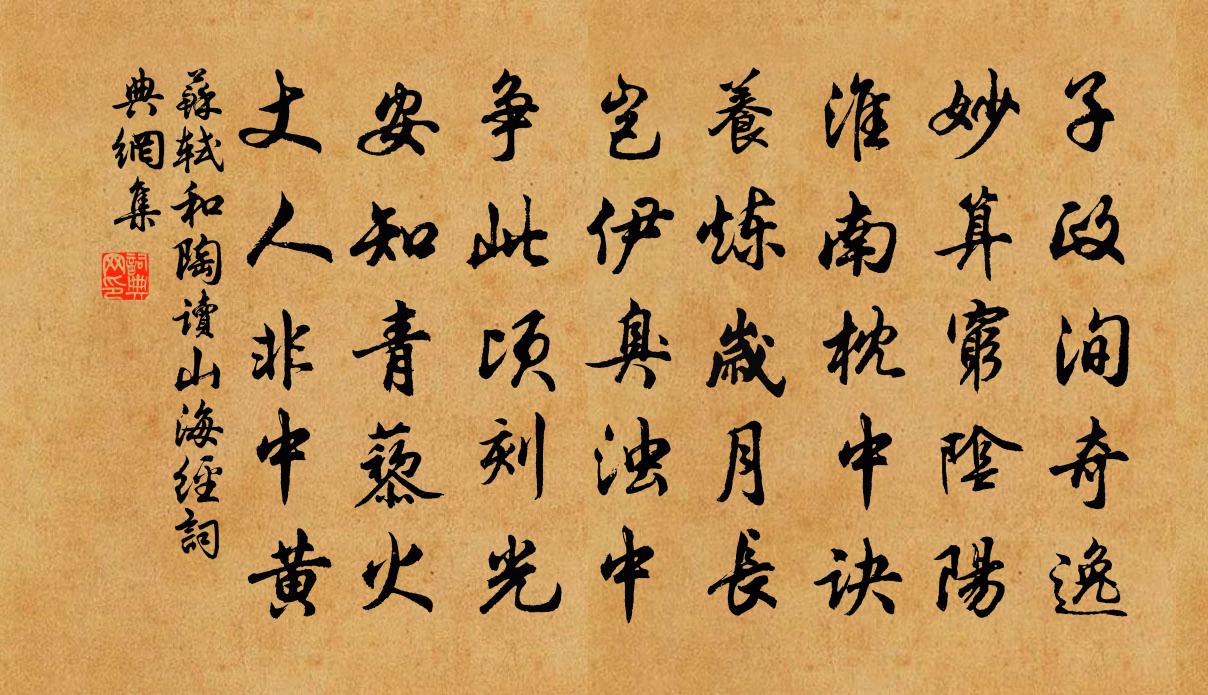 子政洵奇逸
妙算窮陰陽
淮南枕中訣
養煉歲月長
豈伊臭濁中
爭此頃刻光
安知青藜火
丈人非中黃
蘇軾和陶讀山海經詞
典網集
詞典
网印